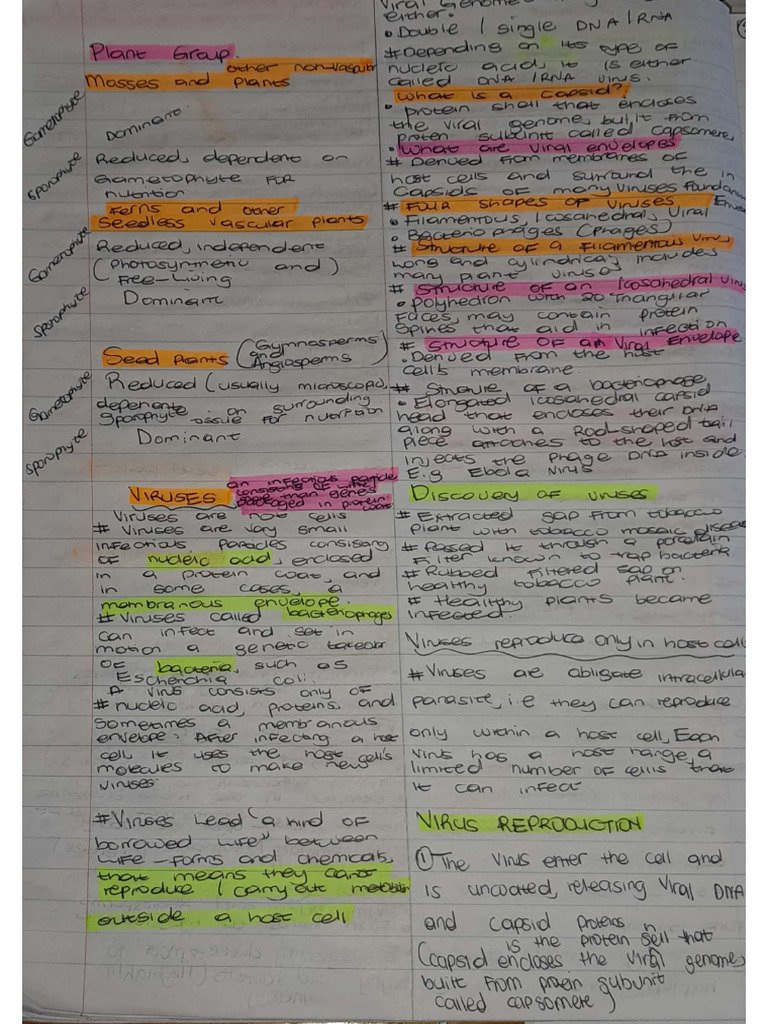 Plant Group.
other non-vascular
Mosses and plants
Gametophyte
Dominant.
Sporophyte
Reduced, dependent on
Gamatophyte FOR
nutrition
Ferns and other
Seedless vascular plants
Gametophyte
Reduced, independent
(Photosynthetic and)
Free-Living
Sporophyte
Dominant
Seed Plants (Gymnosperms and Angiosperms)
Gametophyte
Reduced (usually microscopic),
dependent on surrounding
sporophyte tissue for nutrition
Sporophyte
Dominant
VIRUSES
an infectious particle
consisting of little
more than genes
packaged in protein
coat
Viruses are not cells
# Viruses are very small
infectious particles consisting
of nucleic acid, enclosed
in a protein coat, and
in some cases, a
membranous envelope.
# Viruses called bacteriophages
can infect and set in
motion a genetic takeover
of bacteria, such as
Escherichia coli.
A virus consists only of
# nucleic acid, proteins, and
sometimes a membranous
envelope. After infecting a host
cell it uses the host cell's
molecules to make new
viruses
#Viruses Lead "a kind of
borrowed life" between
life-forms and chemicals,
that means they can't
reproduce / carry out
outside a host cell
Viral Genomes
either.
• Double / single DNA / RNA
# Depending on its type of
nucleic acid, it is either
called DNA / RNA virus.
What is a capsid?
• protein shell that encloses
the viral genome, built from
protein subunit called capsomere,
• What are viral envelopes
# Derived from membranes of
host cells and surround the in
Capsids of many viruses found in
# Four shapes of viruses
• Filamentous, Icosahedral, Viral Enve
• Bacteriophages (Phages)
# Structure of a Filamentous virus
Long and cylindrical, includes
many plant viruses
# Structure of an Icosahedral virus
• Polyhedron with 20 Triangular
faces, may contain protein
spines that aid in infection
# Structure of an Viral Envelope
• Derived from the host
cell's membrane.
# Structure of a bacteriophage
• Elongated icosahedral capsid
head that encloses their DNA
along with a Rod-shaped tail
piece attaches to the host and
injects the phage DNA inside
E.g Ebola Virus
Discovery of viruses
# Extracted sap from tobacco
plant with tobacco mosaic disease
# Passed it through a porcelain
Filter known to trap bacteria
# Rubbed filtered sap on
healthy tobacco plant.
# Healthy plants became
infected.
Viruses reproduce only in host cell
#Viruses are obligate intracellular
parasite, i.e they can reproduce
only within a host cell, Each
Virus has a host range, a
limited number of cells that
it can infect
VIRUS REPRODUCTION
① The virus enter the cell and
is uncoated, releasing Viral DNA
and capsid Proteins
(capsid is the protein sell that
encloses the viral genome,
built from protein subunit
called capsomere)